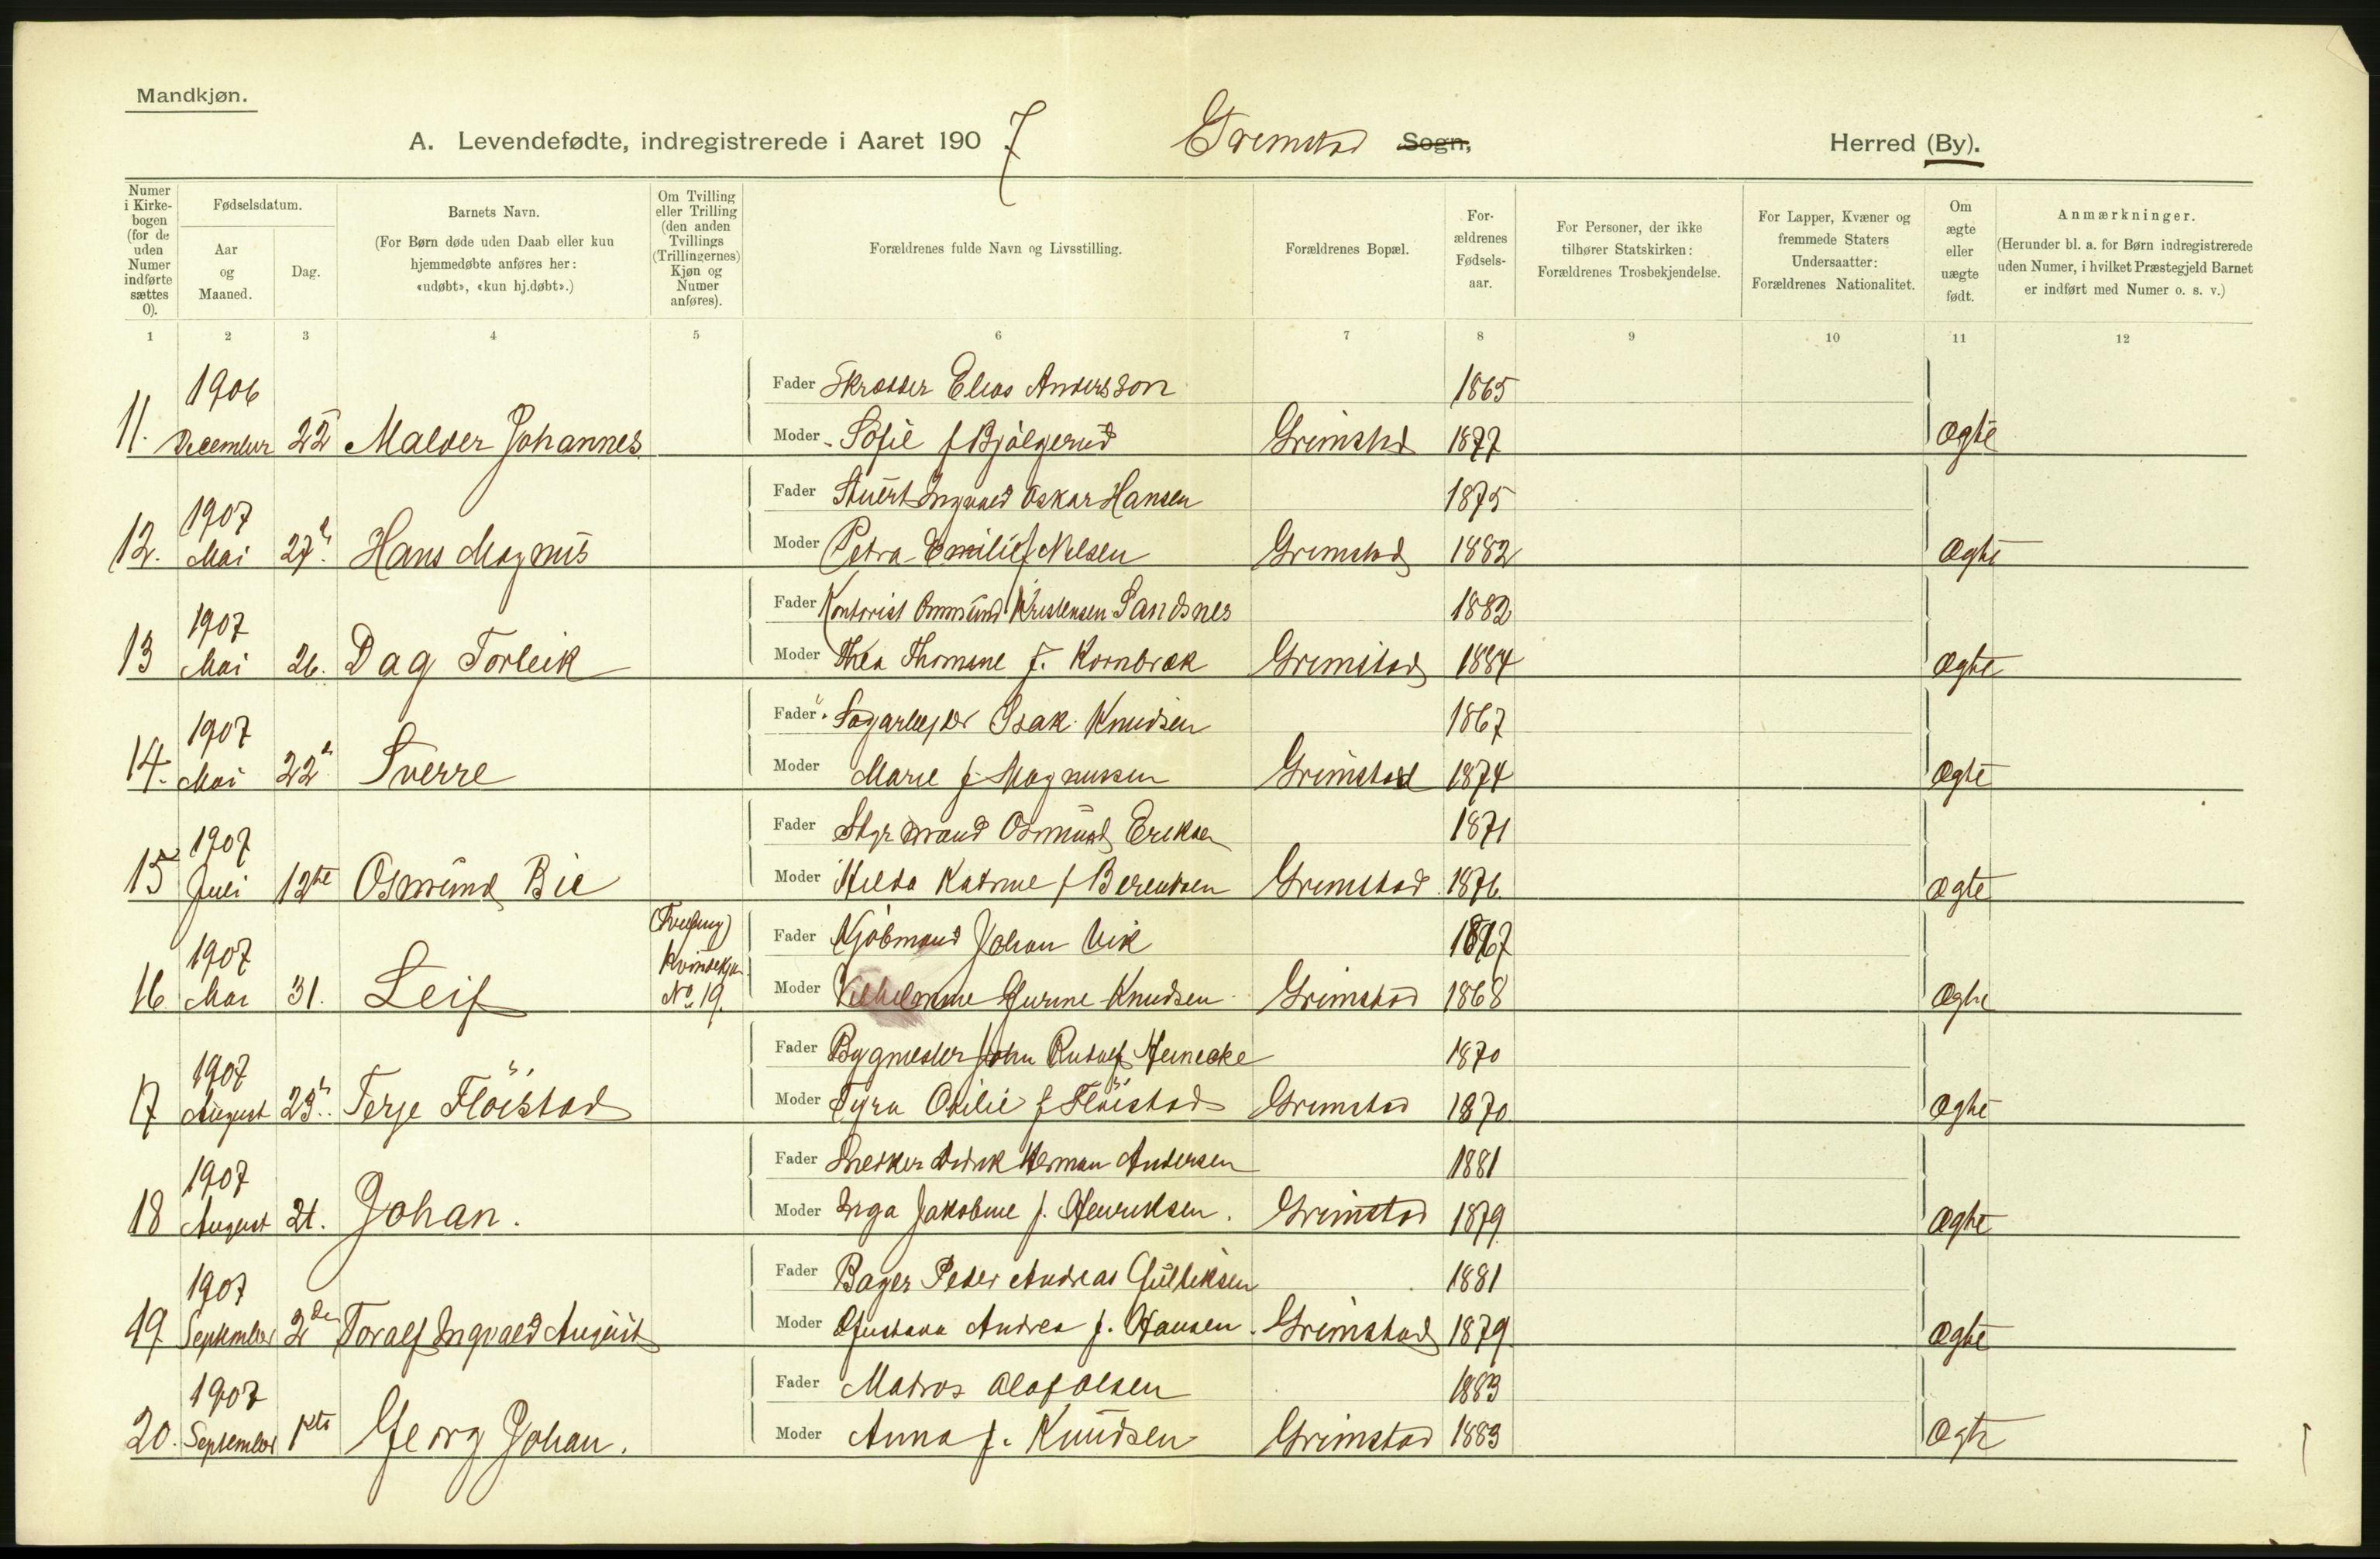 Mandkjøn.
A. Levendefødte, indregistrerede i Aaret 1907 Grimstad Sogn, Herred (By).
Numer i Kirkebogen (for de uden Numer indførte sættes 0).
Fødselsdatum.
Aar og Maaned.
Dag.
Barnets Navn.
(For Børn døde uden Daab eller kun hjemmedøbte anføres her: «udøbt», «kun hj.døbt».)
Om Tvilling eller Trilling (den anden Tvillings (Trillingernes) Kjøn og Numer anføres).
Forældrenes fulde Navn og Livsstilling.
Forældrenes Bopæl.
Forældrenes Fødselsaar.
For Personer, der ikke tilhører Statskirken: Forældrenes Trosbekjendelse.
For Lapper, Kvæner og fremmede Staters Undersaatter: Forældrenes Nationalitet.
Om ægte eller uægte født.
Anmærkninger.
(Herunder bl. a. for Børn indregistrerede uden Numer, i hvilket Præstegjeld Barnet er indført med Numer o. s. v.)
1 2 3 4 5 6 7 8 9 10 11 12
1906 Fader Skrædder Elias Andersson 1865
11. December 22 Johannes Moder Sofie f Bjålgerud Grimstad 1877 Ægte
1907 Fader Stuert Ingvald Oskar Hansen 1875
12. Mai 27 Hans Magnus Moder Petra Emilie f Nilsen Grimstad 1882 Ægte
1907 Fader Kontorist Ommund Kristensen Sandsnes 1882
13 Mai 26. Dag Torleik Moder Thea Thomine f. Kornbræk Grimstad 1884 Ægte
1907 Fader Sagarbejder Isak Knudsen 1867
14. Mai 22 Sverre Moder Marie f. Magnussen Grimstad 1874 Ægte
1907 Fader Styrmand Osmund Eriksen 1871
15 Juli 12te Osmund Bie Moder Hilda Katrine f Berentsen Grimstad 1876 Ægte
1907 (Tvilling) Kvindekjøn No. 19. Fader Kjøbmand Johan Vik 1867
16 Mai 31. Leif Moder Vilhelmine Gurine Knudsen Grimstad 1868 Ægte
1907 Fader Bygmester John Rudolf Heinecke 1870
17 August 23 Terje Flöistad Moder Tyra Otilie f Flöistad Grimstad 1870 Ægte
1907 Fader Snedker Didrik Herman Andersen 1881
18 August 21. Johan. Moder Inga Jakobine f. Henriksen. Grimstad 1879 Ægte
1907 Fader Bager Peder Andreas Gulliksen 1881
19 September 2den Toralf Ingvald August Moder Gustava Andrea f. Hansen. Grimstad 1879 Ægte
1907 Fader Matros Olaf Olsen 1883
20. September 1ste Georg Johan. Moder Anna f. Knudsen Grimstad 1883 Ægte